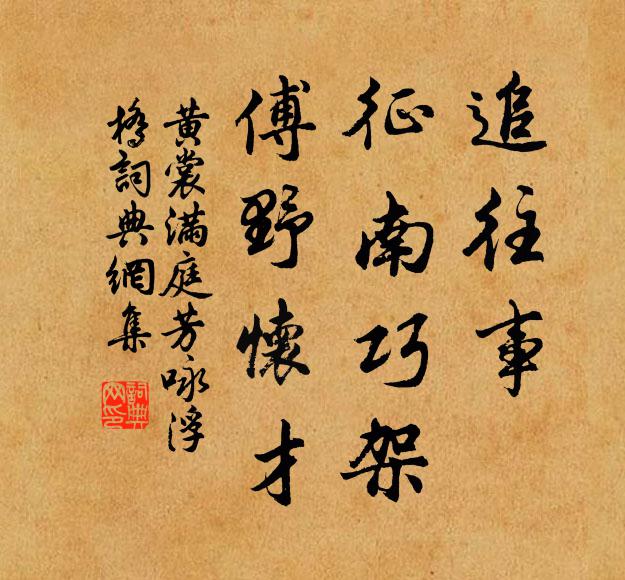 追往事
征南巧架
傅野懷才
黃裳滿庭芳咏浮
橋詞典網集
詞典网印